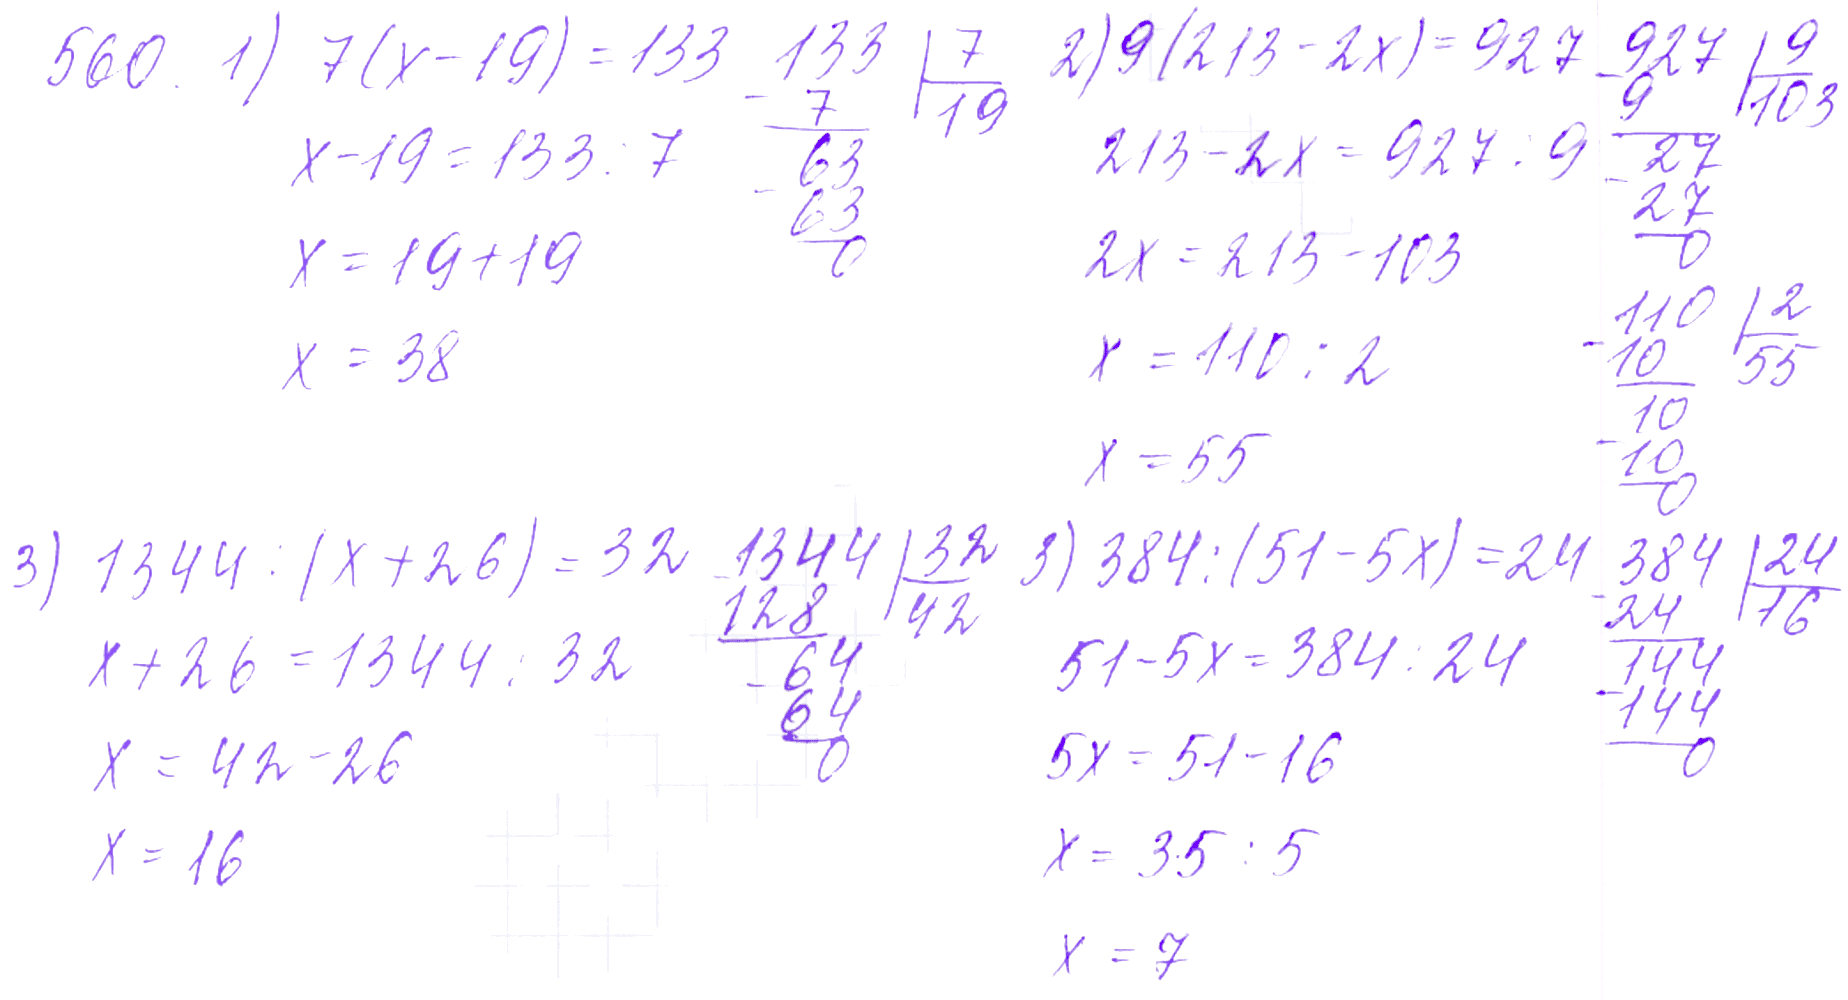 560. 1) 7(x-19)=133
133 | 7
- 7
19
63
- 63
0
x-19=133:7
x=19+19
x=38
2) 9(213-2x)=927
- 927 | 9
9
103
27
- 27
0
213-2x=927:9
2x=213-103
x=110:2
x=55
- 110 | 2
10
55
10
- 10
0
3) 1344:(x+26)=32
- 1344 | 32
128
42
64
- 64
0
x+26=1344:32
x=42-26
x=16
3) 384:(51-5x)=24
- 384 | 24
24
16
144
- 144
0
51-5x=384:24
5x=51-16
x=35:5
x=7